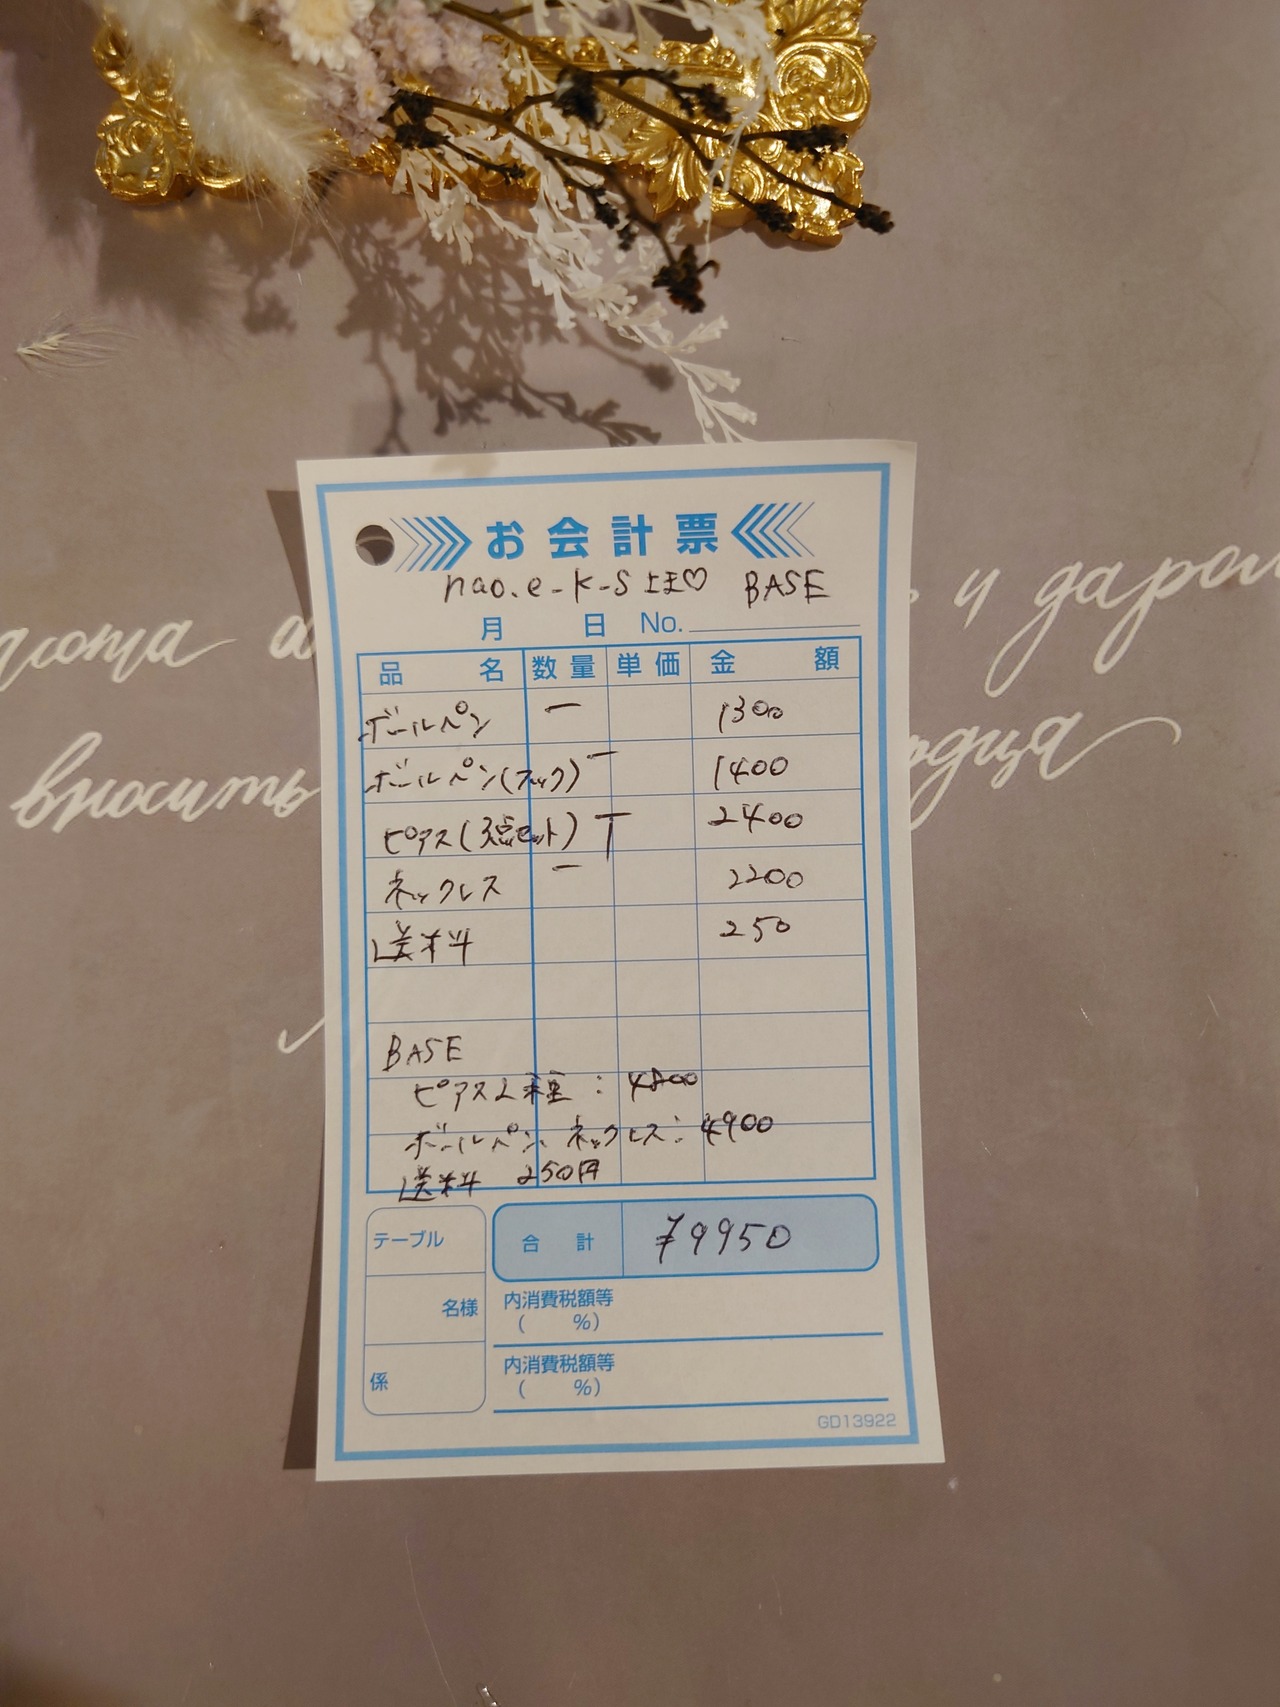 お会計票
nao.e-k-s 様♡ BASE
月 日 No.
品名 数量 単価 金額
ボールペン 一 1300
ボールペン(フック) 一 1400
ピアス(3点セット) T 2400
ネックレス 一 2200
送料 250
BASE
ピアス2種 : 4800
ボールペン、ネックレス: 4900
送料 250円
テーブル
合計 ¥9950
名様
内消費税額等
( %)
係
内消費税額等
( %)
GD13922
и дарол
вносить
рдца